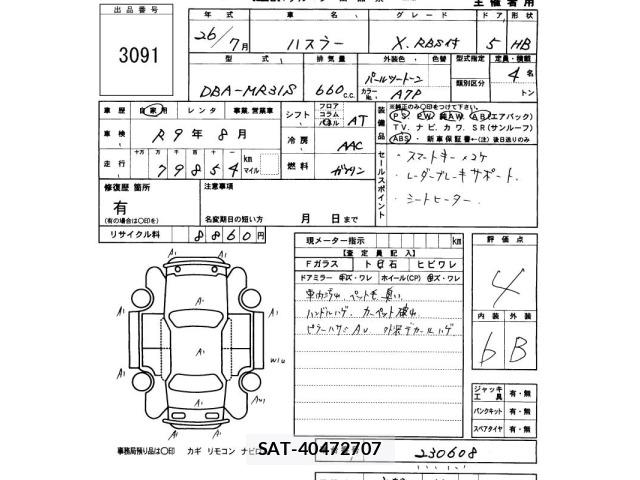 主催者用
出品番号
3091
年式 車名 グレード ドア 形状
26/7月 ハスラー X.RBS付 5 HB
型式 排気量 外装色 色替 型式指定 定員・積載
DBA-MR31S 660 c.c. パールツートーン 4 名
カラーNo. A7P 類別区分 トン
車歴 自家用 レンタ 事業・営業車
シフト フロア コラム パネル AT
装備品 ※純正のみ○印をつけて下さい。
PS PW AW AB(エアバック)
TV、ナビ、カワ、SR(サンルーフ)
ABS・新車保証書←(注)後日送りのみ
車検 R9年8月
冷房 AAC
走行 十万 万 千 百 十 一
79854 km マイル
燃料 ガソリン
セールスポイント
・スマートキー×2ケ
・レーダーブレーキサポート.
・シートヒーター.
修復歴 箇所
有
(有の場合は○印を)
注意事項
名変期日の短い方 月 日まで
リサイクル料 8860円
現メーター指示 km
【査定員記入】
Fガラス 卜 石 ヒビワレ
ドアミラー キズ・ワレ ホイール(CP) キズ・ワレ
車内汚れ.ペット毛.臭い
ハンドルハゲ.カーペット
評価点
4
内装 外装
6 B
A1
A1
A1
A1
A1
A1
A1
A1
W1U
AU1
ジャッキ 工具 有・無
パンクキット 有・無
スペアタイヤ 有・無
事務局預り品は○印 カギ リモコン ナビ
SAT-40472707
230608